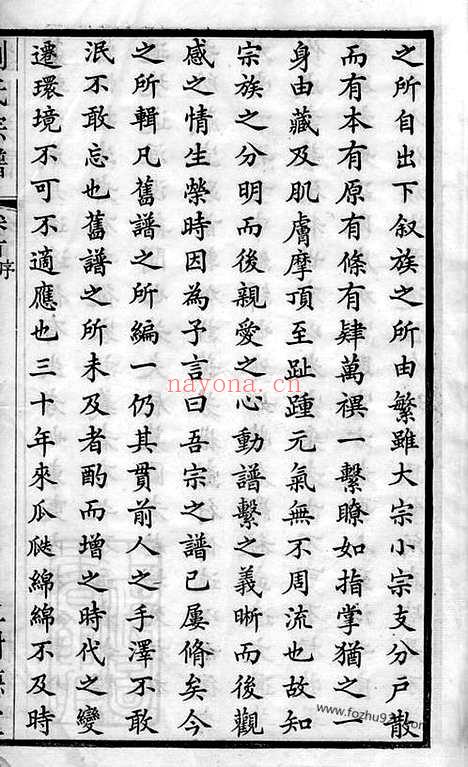 之所自出下叙族之所由繁雖大宗小宗支分戶散
而有本有原有條有肄萬禩一繫瞭如指掌猶之一
身由藏及肌膚摩頂至趾踵元氣無不周流也故知
宗族之分明而後親愛之心動譜繫之義晰而後觀
感之情生榮時因為予言曰吾宗之譜已屢脩矣今
之所輯凡舊譜之所編一仍其貫前人之手澤不敢
泯不敢忘也舊譜之所未及者酌而增之時代之變
遷環境不可不適應也三十年來瓜瓞綿綿不及時
氏宗譜
序
nayona.cn